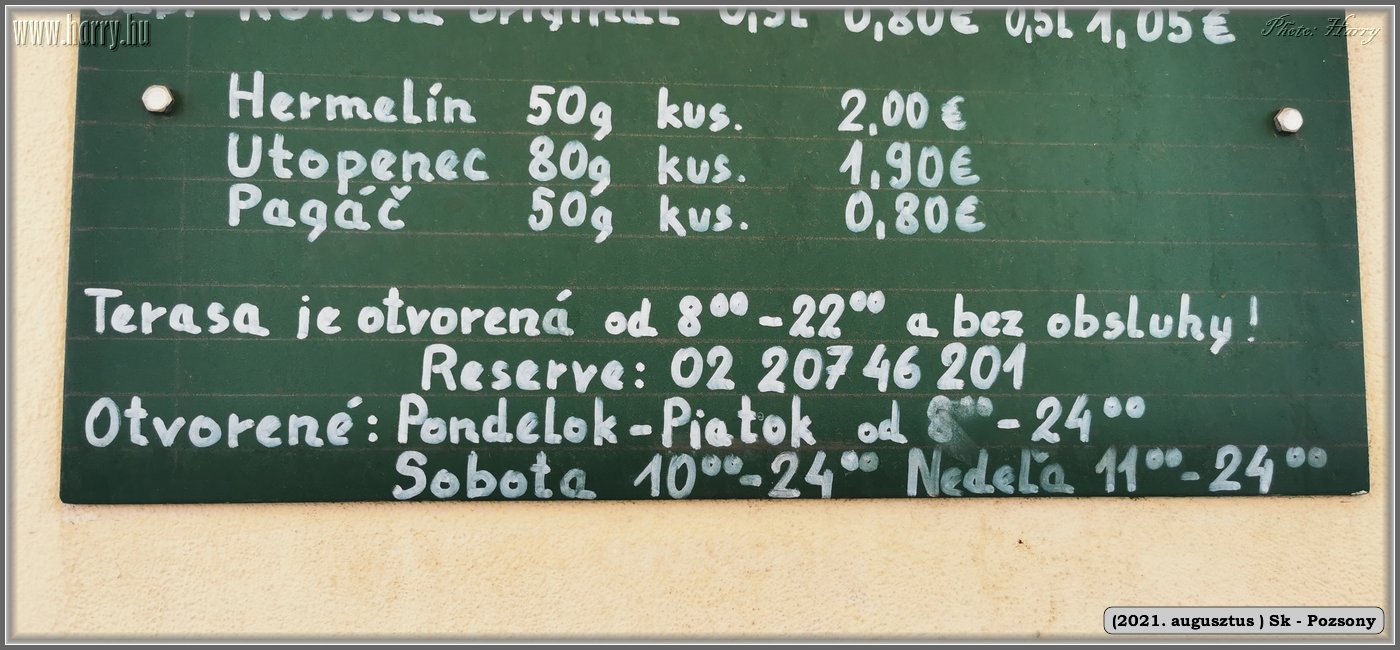 www.harry.hu
Photo: Harry
Kofola originál 0,3L 0,80€ 0,5L 1,05€
Hermelín 50g kus. 2,00€
Utopenec 80g kus. 1,90€
Pagáč 50g kus. 0,80€
Terasa je otvorená od 8⁰⁰-22⁰⁰ a bez obsluhy!
Reserve: 02 207 46 201
Otvorené: Pondelok-Piatok od 8⁰⁰-24⁰⁰
Sobota 10⁰⁰-24⁰⁰ Nedeľa 11⁰⁰-24⁰⁰
(2021. augusztus ) Sk - Pozsony